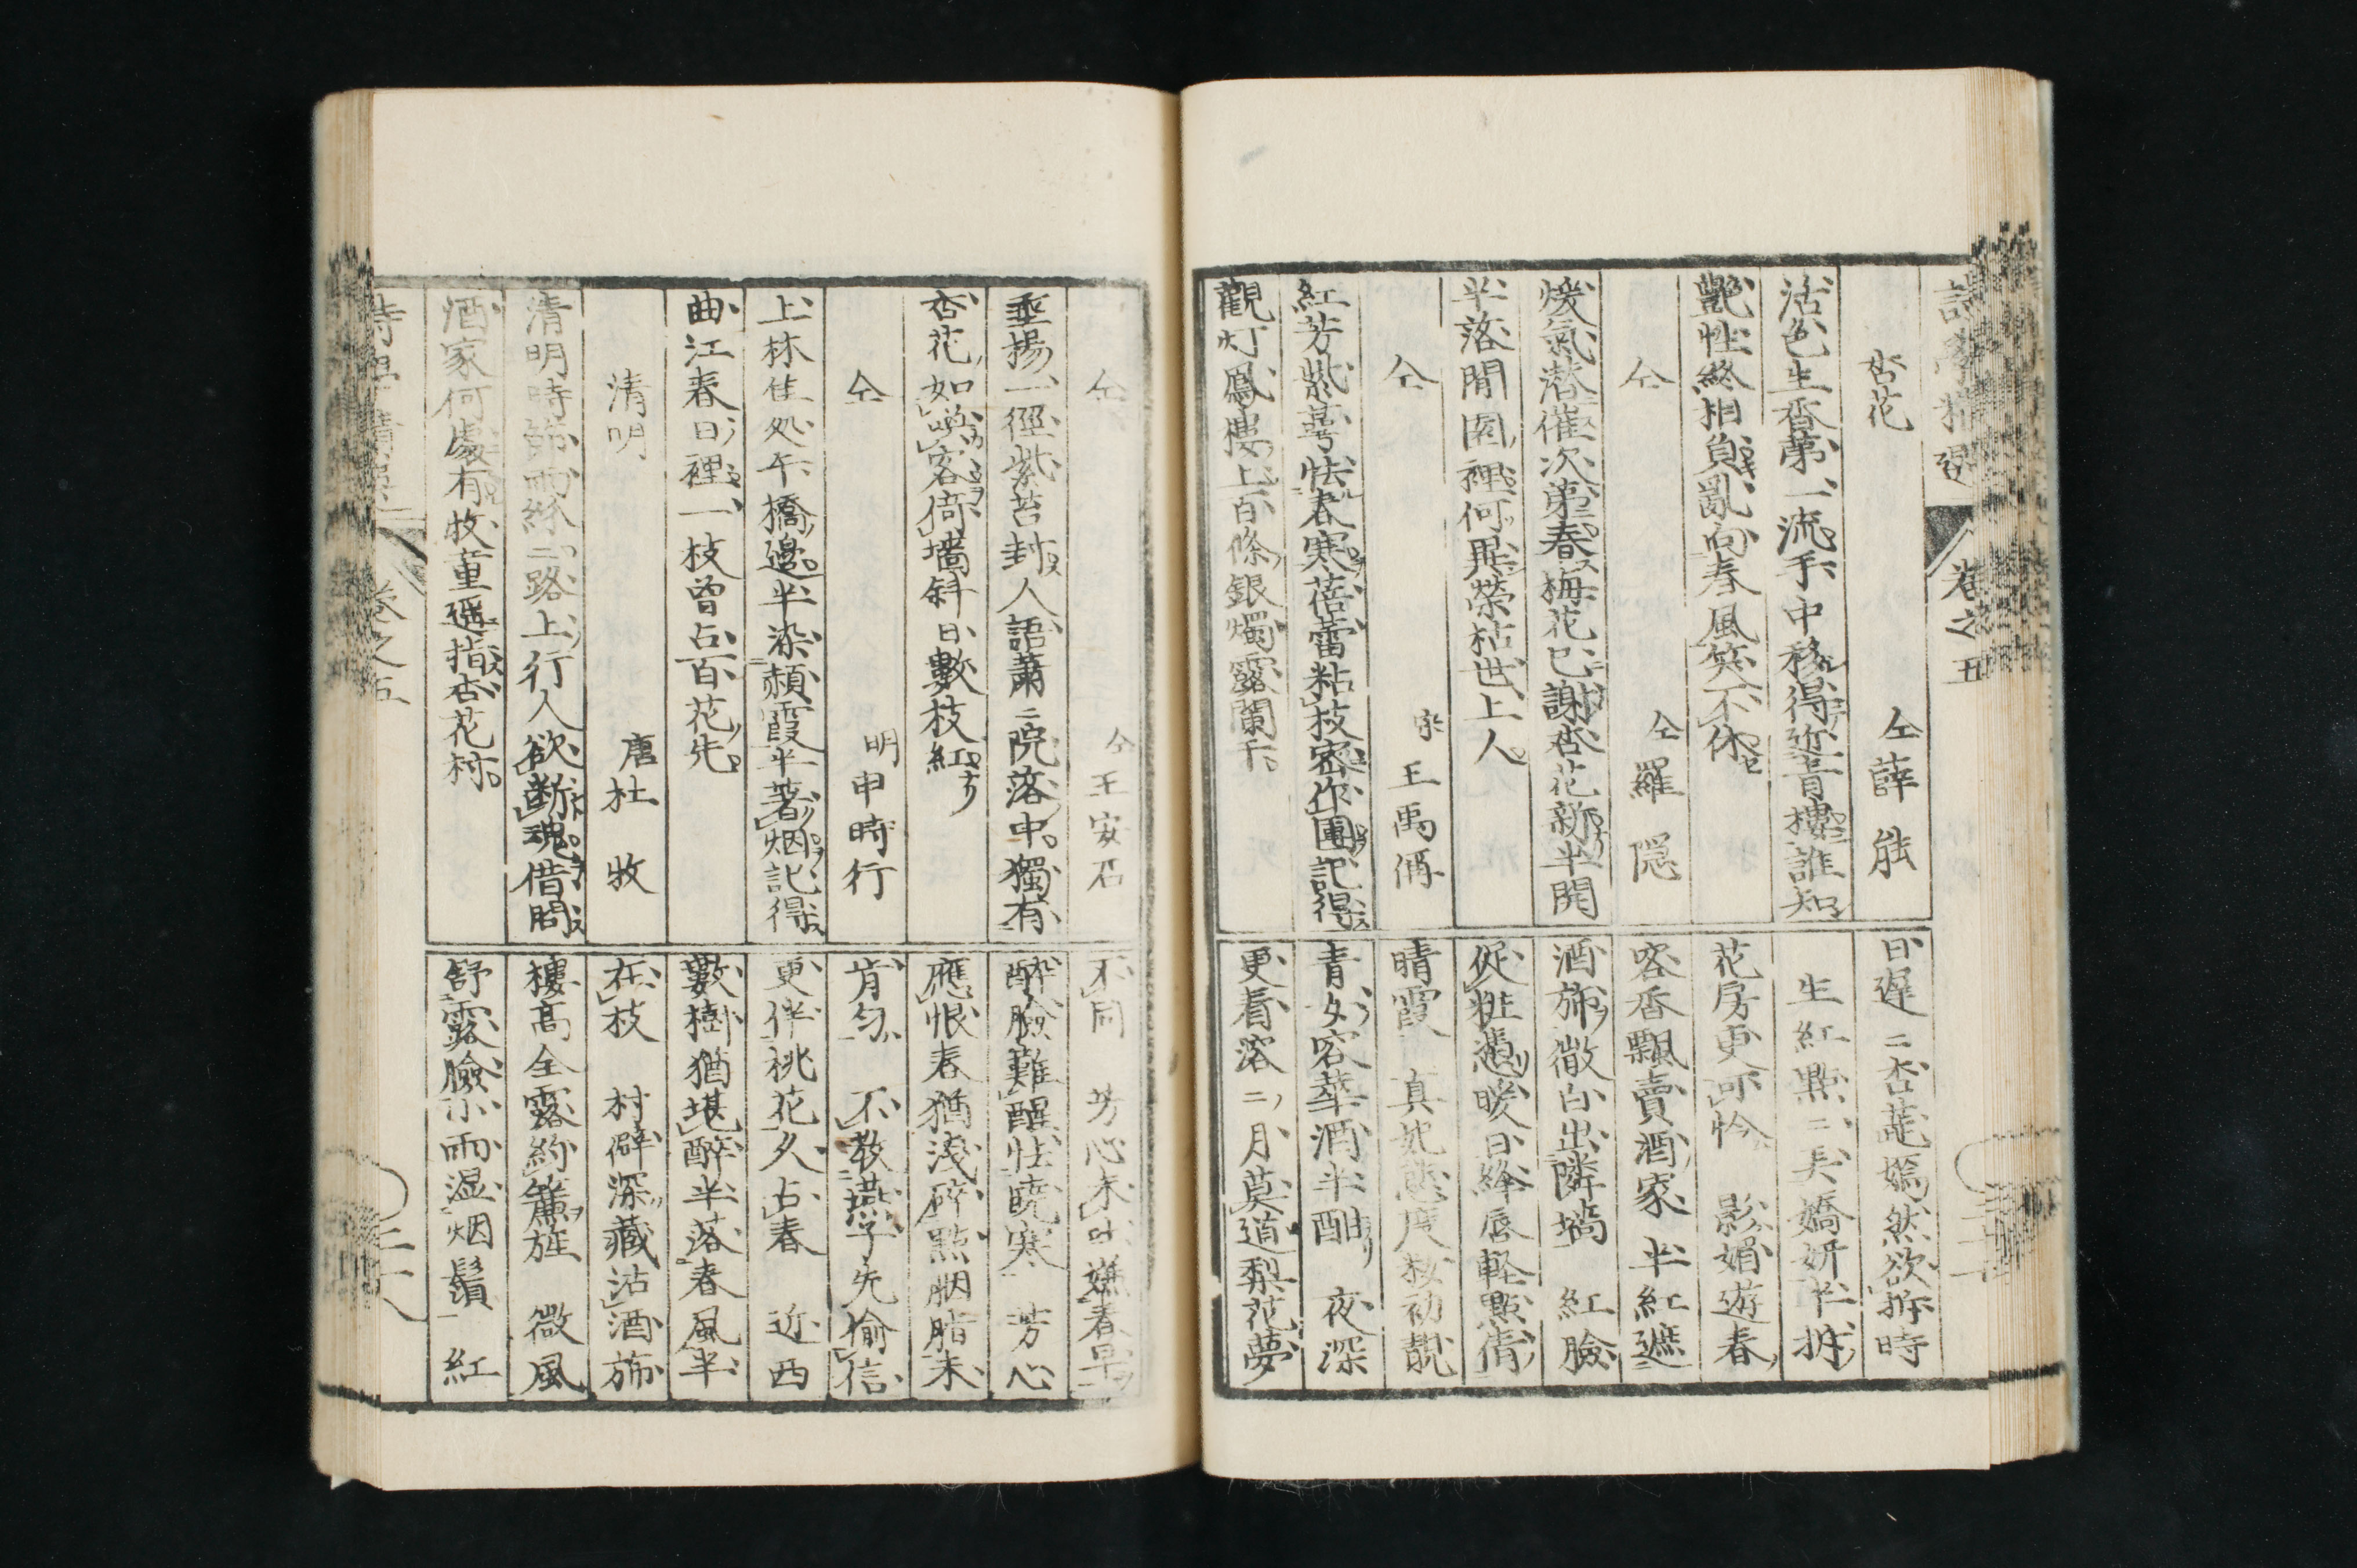 杏花　　仝 薛能
活色生香第一流手中移得近青樓誰知
艷性終相負亂向春風笑不休
仝　　仝 羅隠
煖氣潜催次第春梅花已謝杏花新半開
半落閒園裡何異榮枯世上人
仝　　宋 王禹偁
紅芳紫萼怯春寒蓓蕾粘枝密作團記得
觀灯鳳樓上百條銀燭露闌干
日遲〻杏蕋嫣然欲拆時
生紅點〻 嬌妍半拆
花房更可怜　影媚遊春
客香飄賣酒家　半紅遮
酒斾微白出隣墻　紅臉
促粧慿暖日絳唇軽點倩
晴霞　真妃態度粧初靚
青女容華酒半酣　夜深
更看溶〻月莫道梨花夢
卷之五
仝　　仝 王安石
垂揚一徑紫苔封人語蕭〻院落中獨有
杏花如喚客倚墻斜日數枝紅
仝　　明 申時行
上林佳処午橋邊半染頳霞半著烟記得
曲江春日裡一枝曾占百花先
清明　　唐 杜牧
清明時節雨紛〻路上行人欲断魂借問
酒家何處有牧童遥指杏花村
不同　芳心未 嫌春早
醉臉難醒怯暁寒　芳心
應恨春猶浅碎點胭脂未
肯匀　不教燕子先偷信
更伴桃花久占春　近西
數樹猶堪醉半落春風半
在枝　村僻深藏沽酒斾
樓高全露約簾旌　微風
舒露臉小雨湿烟鬚　紅
卷之五